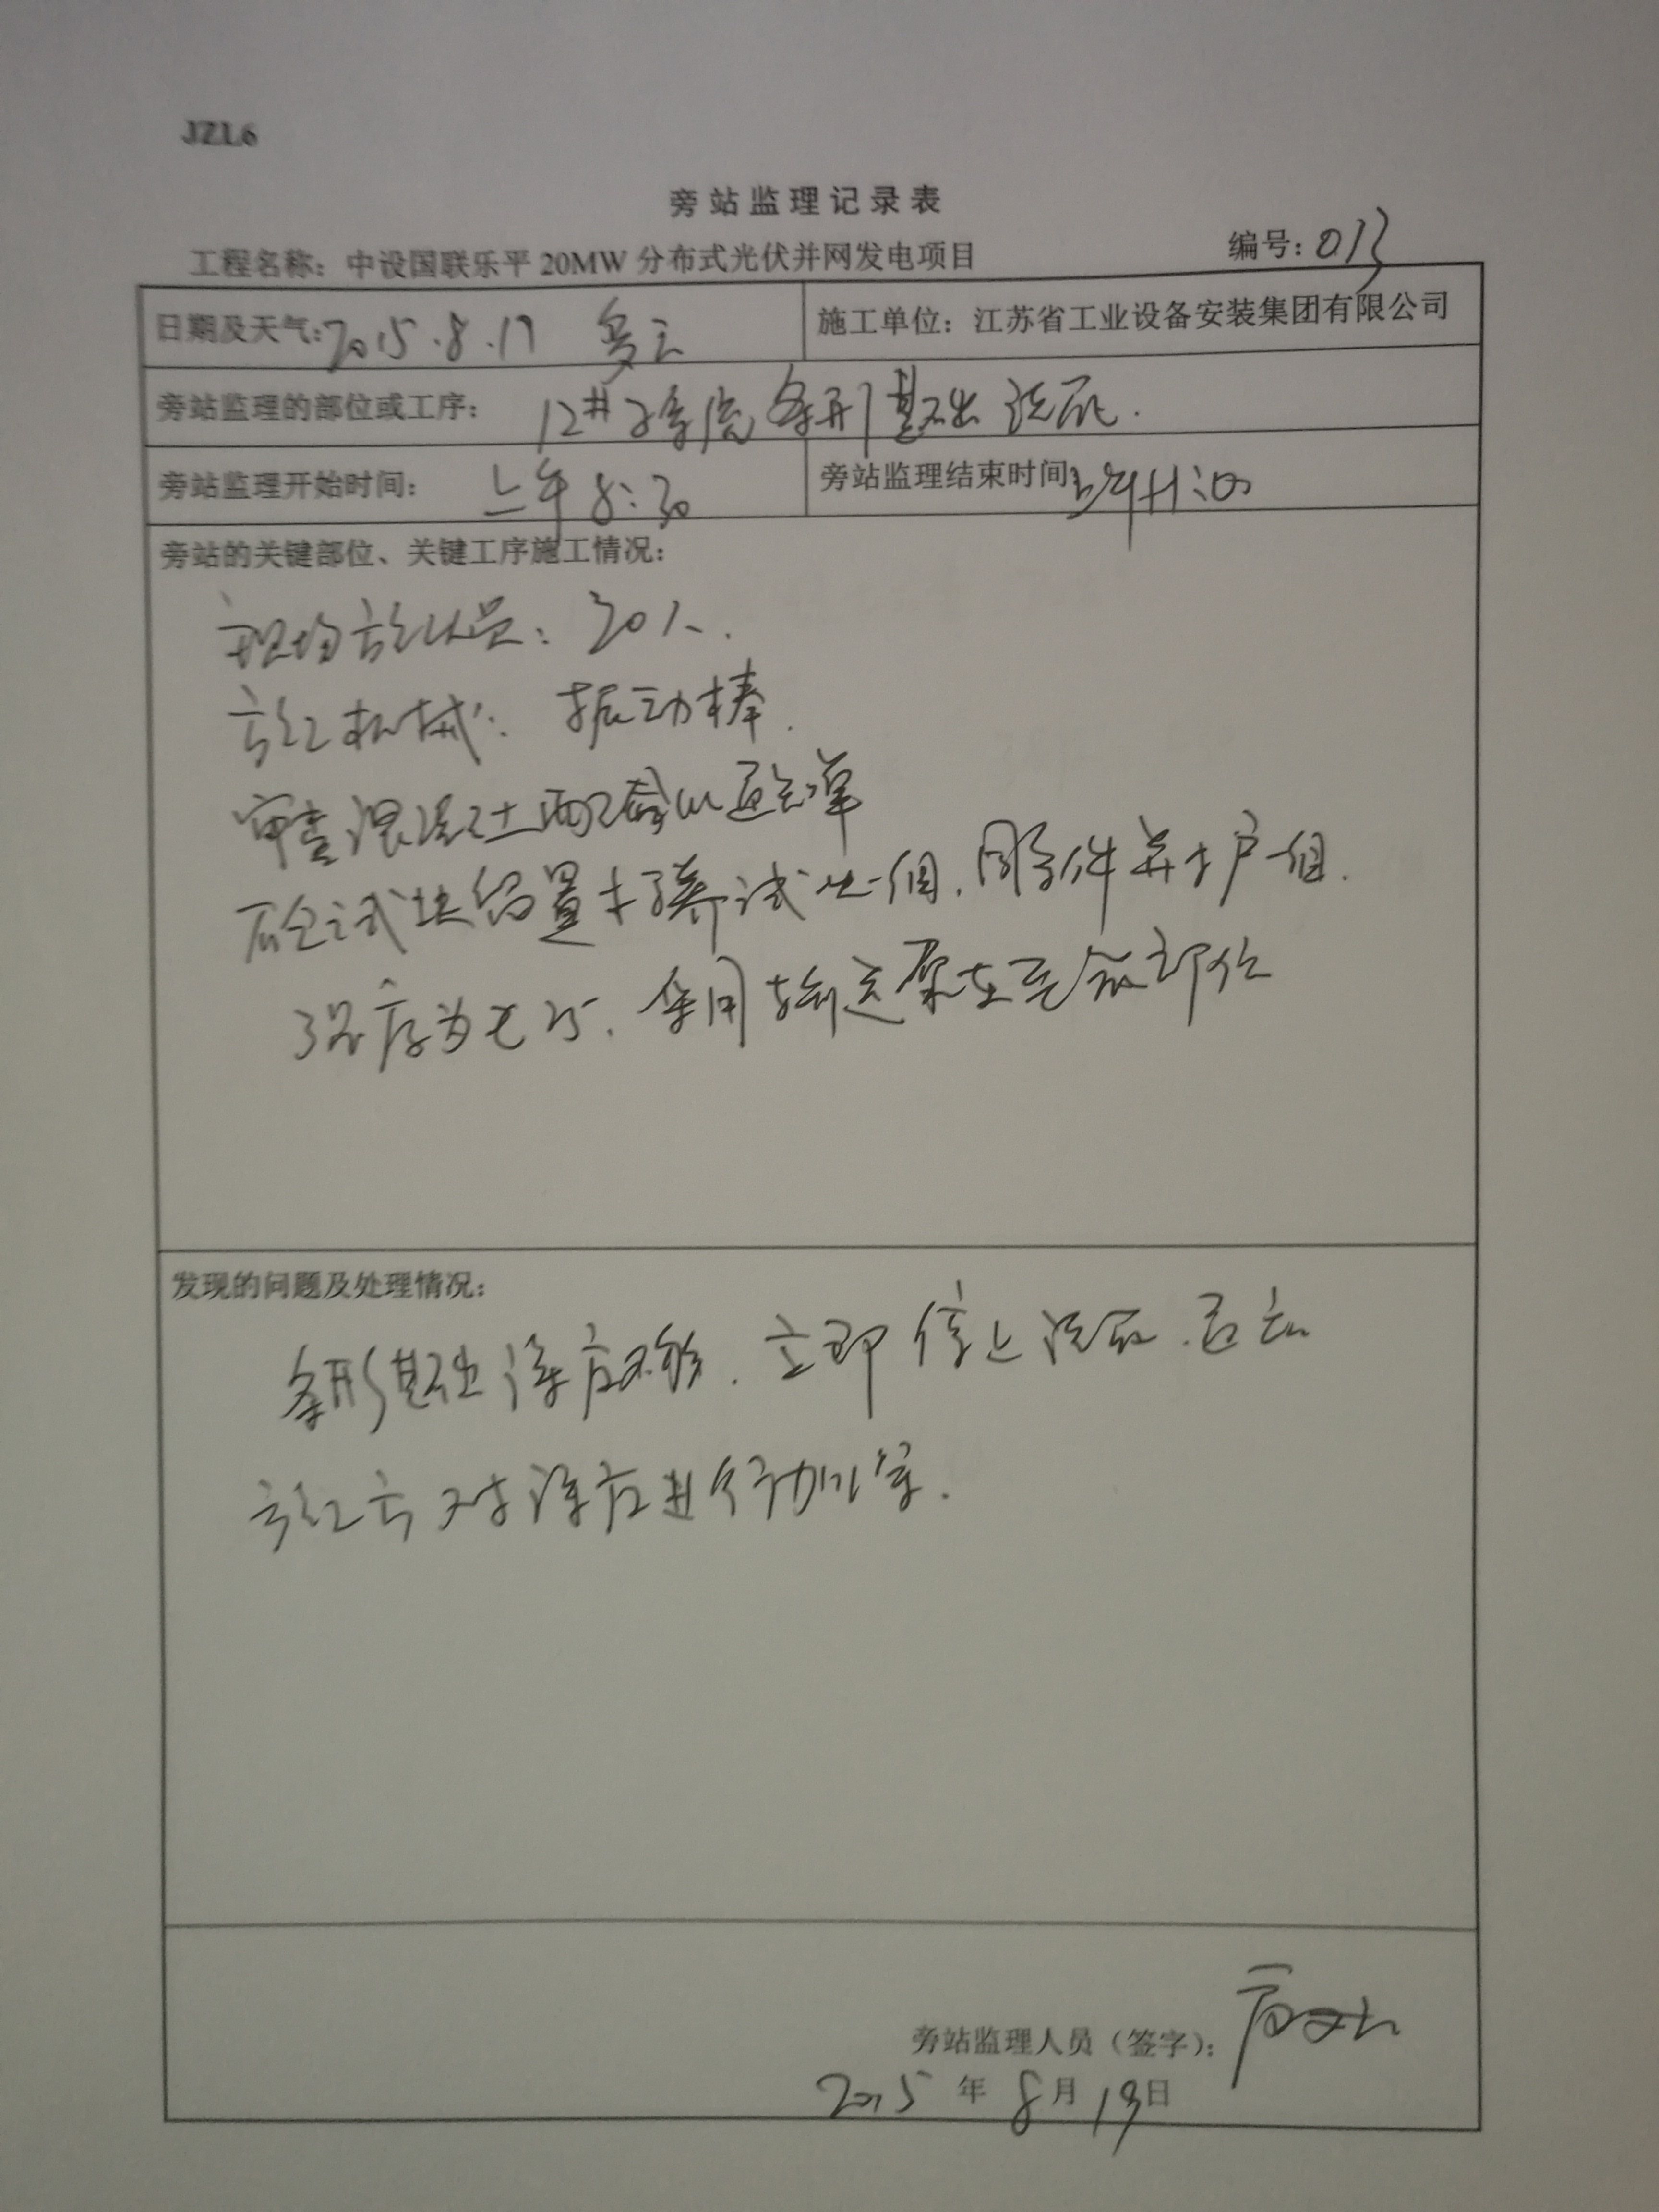 JZL6
旁站监理记录表
工程名称：中设国联乐平20MW分布式光伏并网发电项目 编号：013
日期及天气：2015.8.17 多云 施工单位：江苏省工业设备安装集团有限公司
旁站监理的部位或工序：12#子系统条形基础浇砼.
旁站监理开始时间：上午8:30 旁站监理结束时间 上午11:00
旁站的关键部位、关键工序施工情况：
现场施工人员：30人.
施工机械：振动棒.
审查混凝土配合比通知单
砼试块留置标养试块一组.同条件养护一组.
强度为C25.采用输送泵车至部位
发现的问题及处理情况：
条形基础深度不够.立即停止浇砼.通知
施工方对深度进行加深.
旁站监理人员（签字）：
2015年8月19日